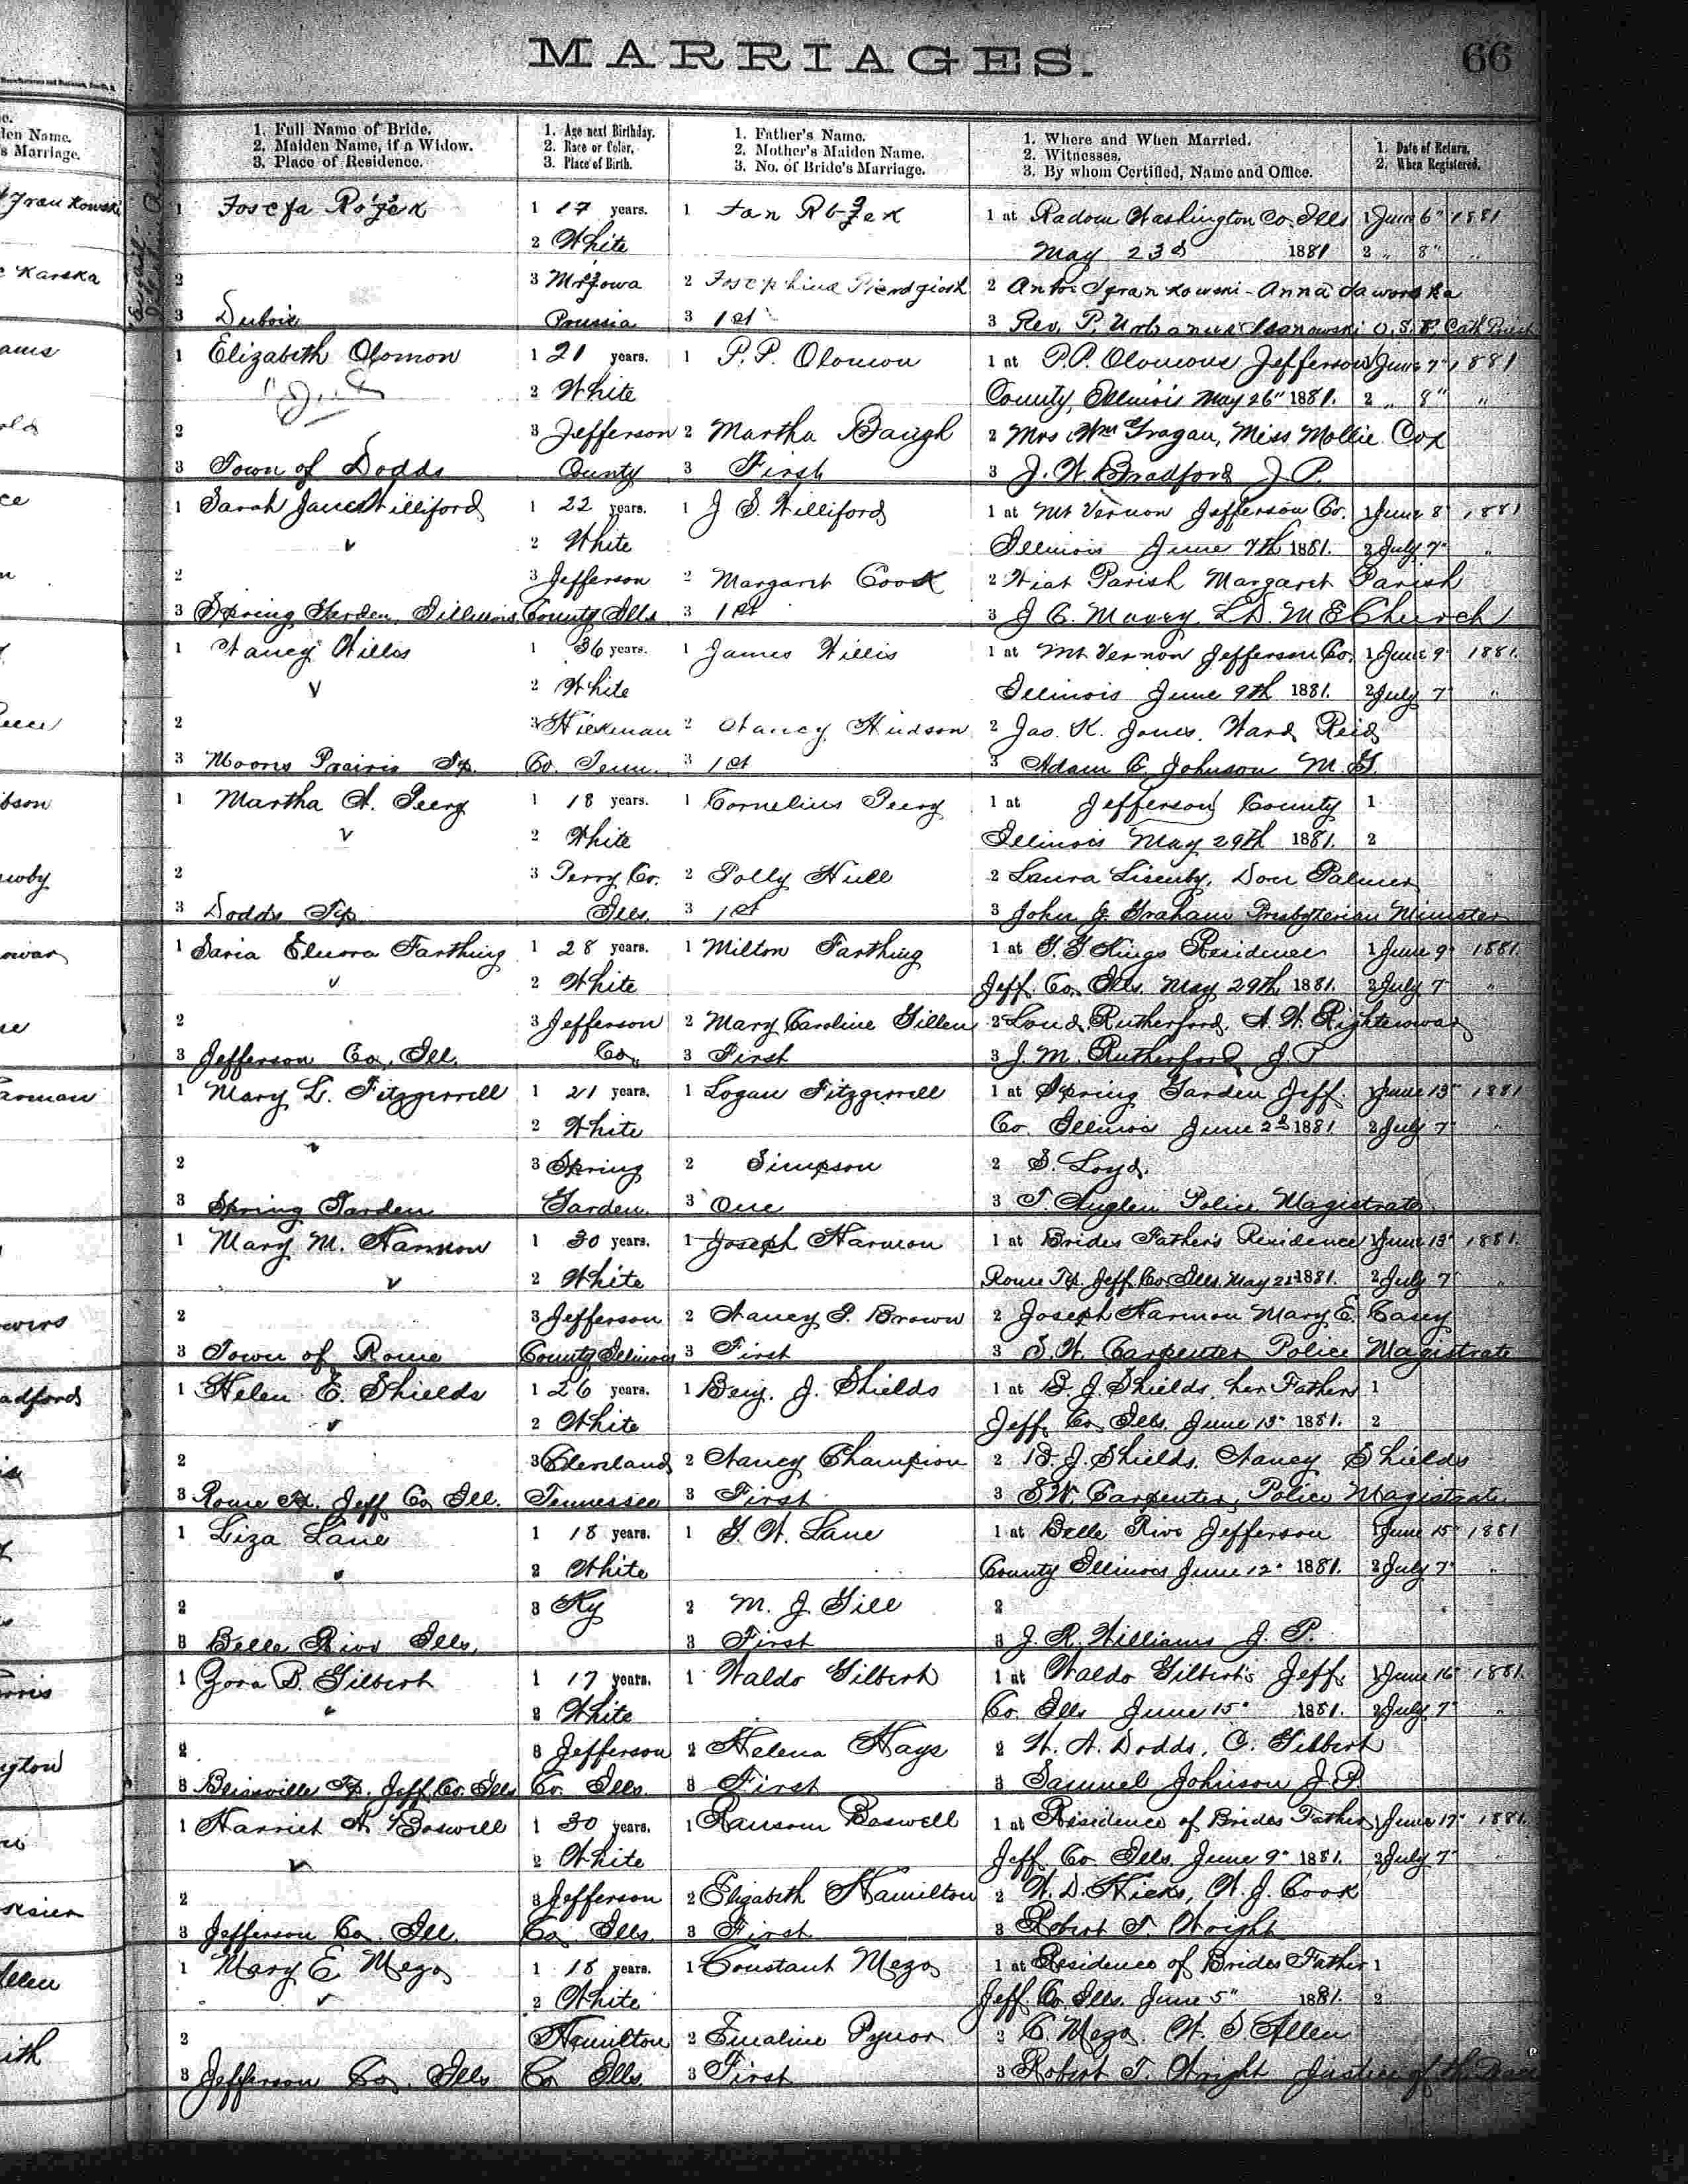 MARRIAGES.
66
1. Full Name of Bride.
2. Maiden Name, if a Widow.
3. Place of Residence.
1. Age next Birthday.
2. Race or Color.
3. Place of Birth.
1. Father's Name.
2. Mother's Maiden Name.
3. No. of Bride's Marriage.
1. Where and When Married.
2. Witnesses.
3. By whom Certified, Name and Office.
1. Date of Return.
2. When Registered.
1 17 years. 1 1 at Radom Washington Co. Ills 1 June 6" 1881
2 White May 23d 1881 2 " 8" "
3 2 Josephina 2
3 Dubois Prussia 3 1st 3 Rev. P. Cath Priest
1 Elizabeth Olomon 1 21 years. 1 P. P. Olomon 1 at P.P. Olomons Jefferson 1 June 7" 1881
2 White County, Illinois May 26" 1881. 2 " 8" "
2 3 Jefferson 2 Martha Baugh 2 Mrs Wm Gragau, Miss Mollie Cox
3 Town of Dodds County 3 First 3 J. W. Bradford J. P.
1 Sarah Jane Williford 1 22 years. 1 J. S. Williford 1 at Mt Vernon Jefferson Co. 1 June 8" 1881
2 White Illinois June 7th 1881. 2 July 7" "
2 3 Jefferson 2 Margaret Cook 2 Wiat Parish Margaret Parish
3 Spring Garden, Illinois County Ills 3 1st 3 J C. Maxey L.D. M E Church
1 Nancy Willis 1 36 years. 1 James Willis 1 at Mt Vernon Jefferson Co. 1 June 9" 1881.
2 White Illinois June 9th 1881. 2 July 7" "
2 3 Hickman 2 Nancy Hudson 2 Jas. K. Jones. Ward Reid
3 Moores Prairie Tp. Co. Tenn. 3 1st 3 Adam C. Johnson M. G.
1 Martha A. Peery 1 18 years. 1 Cornelius Peery 1 at Jefferson County 1
2 White Illinois May 29th 1881. 2
2 3 Perry Co. 2 Polly Hull 2 Laura Lisenby, Don Palmer
3 Dodds Tp. Ills. 3 1st 3 John J. Graham Presbyterian Minister
1 Saria Elnora Farthing 1 28 years. 1 Milton Farthing 1 at Kings Residence 1 June 9" 1881.
2 White Jeff. Co. Ills. May 29th 1881. 2 July 7 "
2 3 Jefferson 2 Mary Caroline Gillen 2 Rutherford,
3 Jefferson Co, Ill. Co, 3 First 3 J. M. Rutherford J. P
1 Mary L. Fitzgerrell 1 21 years. 1 Logan Fitzgerrell 1 at Spring Garden Jeff. 1 June 13" 1881
2 White Co. Illinois June 2d 1881 2 July 7 "
2 3 Spring 2 Simpson 2 S. Loyd.
3 Spring Garden Garden 3 One 3 T. Anglen Police Magistrate
1 Mary M. Harmon 1 30 years. 1 Joseph Harmon 1 at Brides Father's Residence 1 June 13" 1881.
2 White Rome Tp. Jeff. Co. Ills. May 1881. 2 July 7 "
2 3 Jefferson 2 Nancy P. Brown 2 Joseph Harmon Mary E. Casey
3 Town of Rome County Illinois 3 First 3 S. W. Carpenter Police Magistrate
1 Helen E. Shields 1 26 years. 1 Benj. J. Shields 1 at B. J. Shields, her Fathers 1
2 White Jeff. Co, Ills. June 13" 1881. 2
2 3 Cleveland 2 Nancy Champion 2 B. J. Shields. Nancy Shields
3 Rome Tp. Jeff Co Ill. Tennessee 3 First 3 S W. Carpenter, Police Magistrate
1 Liza Lane 1 18 years. 1 G. W. Lane 1 at Belle Rive Jefferson 1 June 15" 1881
2 White County Illinois June 12" 1881. 2 July 7" "
2 3 Ky 2 M. J. Gill 2
3 Belle Rive Ills, 3 First 3 J. R. Williams J. P.
1 Zora B. Gilbert 1 17 years. 1 Waldo Gilbert 1 at Waldo Gilbert's Jeff. 1 June 16" 1881.
2 White Co. Ills June 15" 1881. 2 July 7" "
2 3 Jefferson 2 Helena Hays 2 W. A. Dodds, C. Gilbert
3 Blissville Tp. Jeff. Co. Ills Co. Ills. 3 First 3 Samuel Johnson J. P.
1 Harriet A Boswell 1 30 years. 1 Ransom Boswell 1 at Residence of Brides Father 1 June 17" 1881.
2 White Jeff. Co. Ills. June 9" 1881. 2 July 7" "
2 3 Jefferson 2 Elizabeth Hamilton 2 W. D. Hicks, W. J. Cook
3 Jefferson Co. Ill. Co. Ills. 3 First 3 Robert T. Wright
1 Mary E Mezo 1 18 years. 1 Constant Mezo 1 at Residence of Brides Father 1
2 White Jeff. Co. Ills. June 5" 1881. 2
2 3 Hamilton 2 Emaline Pynor 2 C. Mezo. W. S Allen
3 Jefferson Co. Ills Co Ills. 3 First 3 Robert T. Wright Justice of the Peace